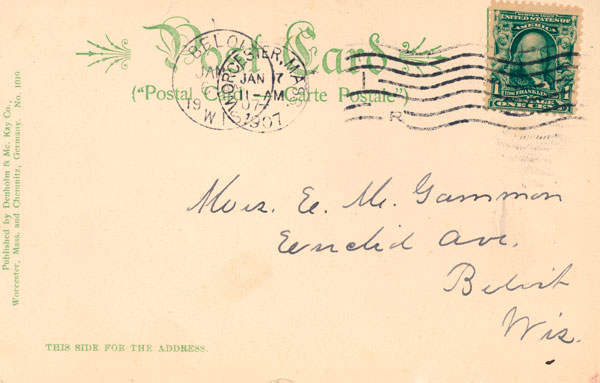 Post Card
("Postal Card — Carte Postale")
BELOIT
JAN
19
WIS
WORCESTER, MASS.
JAN 7
11-AM
1907
R
UNITED STATES OF
AMERICA
FRANKLIN
1 1
ONE
Published by Denholm & Mc. Kay Co.,
Worcester, Mass, and Chemnitz, Germany. No. 1019.
Mrs. E. M. Gammon
Euclid Ave.
Beloit
Wis.
THIS SIDE FOR THE ADDRESS.